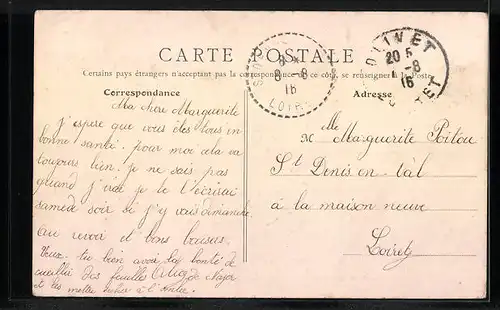 CARTE POSTALE
Certains pays étrangers n'acceptant pas la correspondance de ce côté, se renseigner à la Poste
Correspondance
Adresse
8-8
16
LOIRET
OLIVET
20 5
-8
16
Ma chere Marguerite
j'espere que vous êtes tous in
bonne santé. pour moi cela va
toujours bien. je ne sais pas
quand j'irai je te l'écrirai
samedé soir si j'y vais dimanche
au revoir et bons baisers
Veux-tu bien avoir la bonté de
cueillir des feuilles de
et les mettre à l'
Mlle Marguerite Poitou
St Denis en Val
à la maison neuve
Loiret